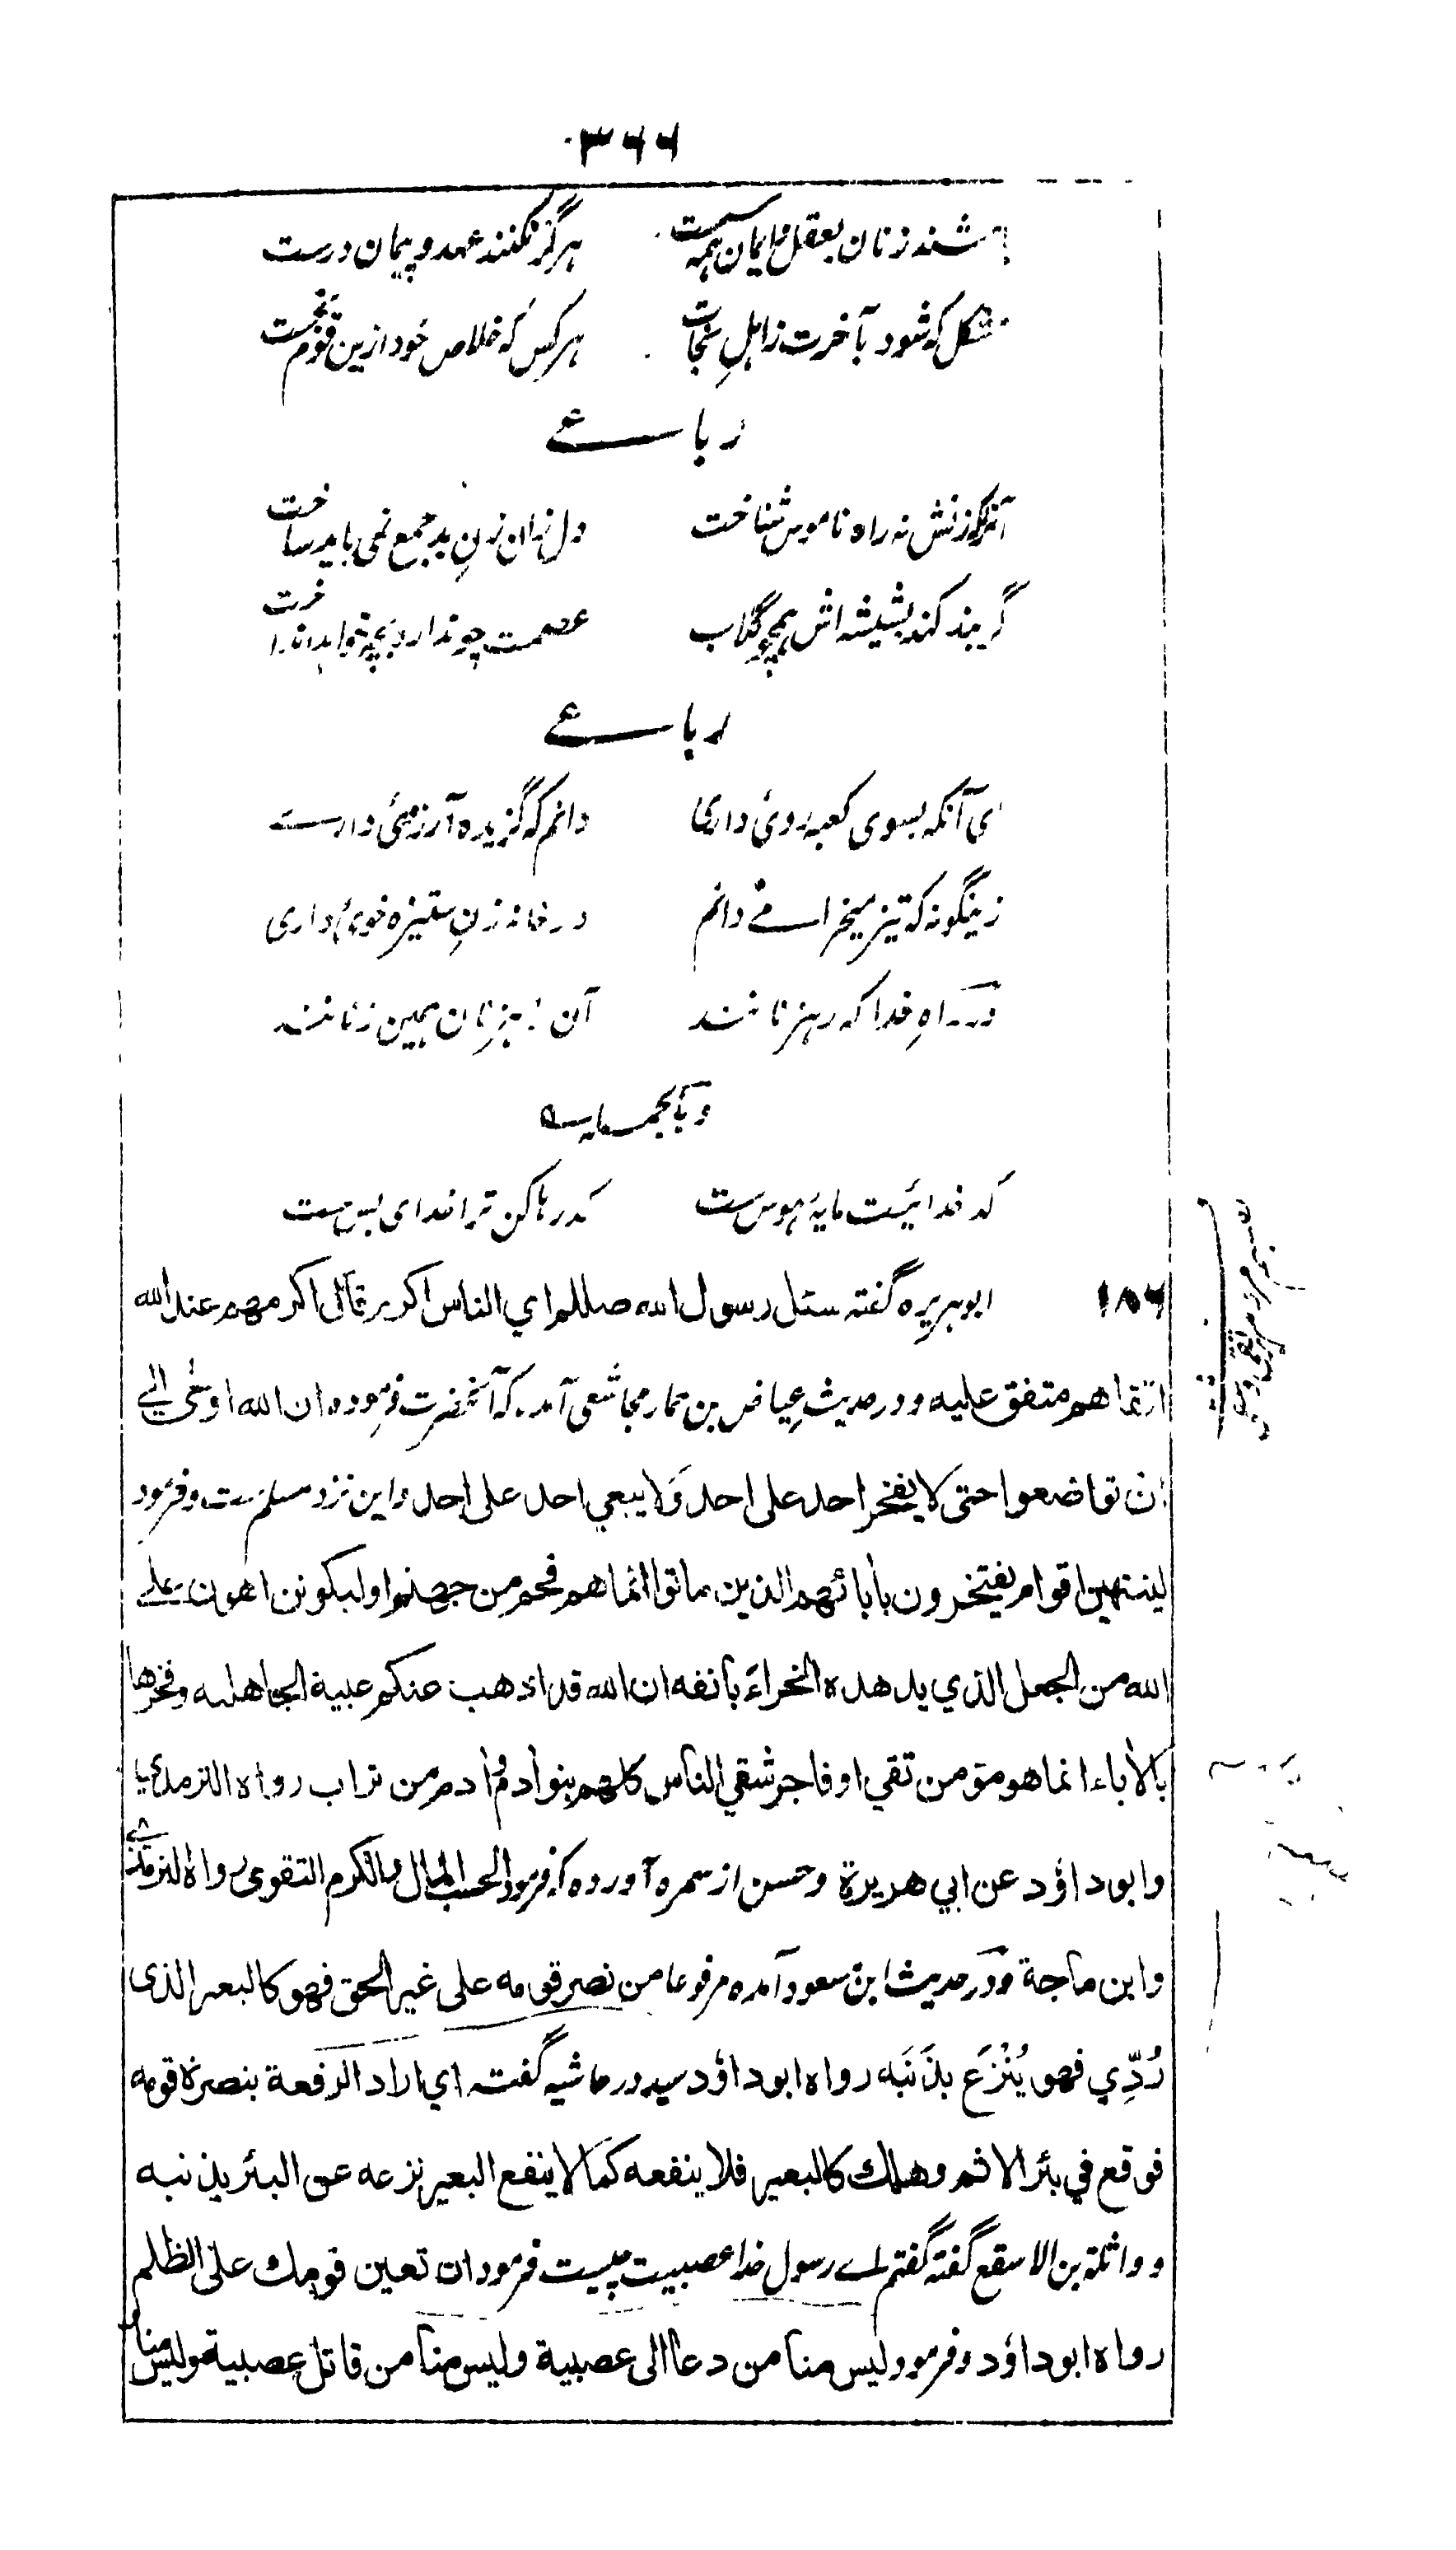 ۳۶۶
باشند زنان بعقل و ایمان همه سست هرگز نکنند عهد و پیمان درست
مشکل که شود بآخرت ز اهلِ نجات هر کس که خلاص خود ازین قوم نجست
رباعے
آنکو زنش نه راه ناموس شناخت دل زان زنِ بد جمع نمی باید ساخت
گر بند کند بشیشه اش همچو گلاب عصمت چو ندارد بچه خواهد انداخت
رباعے
ای آنکه بسوی کعبه روئ داری دانم که گزیده آرزوئی دارے
زینگونه که تیز میخرامے دانم در خانه زنِ ستیزه خوئ داری
در راهِ خدا که رهزنانند آن رهزنان همین زنانند
و بالجمله
کد خدائیست مایهٔ هوس ست کد رها کن ترا خدای بس ست
۱۸۶ ابوهریره گفته سئل رسول الله صللم اي الناس اکرم قال اکرمهم عند الله
اتقاهم متفق علیه و در حدیث عِیاض بن حمار مجاشعی آمده که آنحضرت فرموده ان الله اوحیٰ الے
ان تواضعوا حتی لا یفخر احد علی احد وَلا یبغي احد علی احد و این نزد مسلم ست و فرمود
لینتهین اقوام یفتخرون بأبائهم الذین ماتوا انما هم فحم من جهنم او لیکونن اهون علے
الله من الجعل الذي یدهده الخراءَ بأنفه ان الله قد اذهب عنکم عبیة الجاهلیه و فخرها
بالأباء انما هو مؤمن تقي او فاجر شقي الناس کلهم بنو أدم و أدم من تراب رواه الترمذي
و ابوداؤد عن ابي هریرة و حسن از سمره آورده که فرمود الحسب المال و الکرم التقوی رواه الترمذي
و ابن ماجة و در حدیث ابن مسعود آمده مرفوعا من نصر قومه علی غیر الحق فهو کالبعیر الذی
رُدِّي فهو یُنْزَع بذَنَبَه رواه ابوداؤد سید در حاشیه گفته اي اراد الرفعة بنصرة قومه
فوقع في بئر الاثم و هلك کالبعیر فلا ینفعه کما لا ینفع البعیر نزعه عن البئر بذنبه
و واثلة بن الاسقع گفته گفتم اے رسول خدا عصبیت چیست فرمود ان تعین قومك علی الظلم
رواه ابوداؤد و فرمود لیس منا من دعا الی عصبیة و لیس منا من قاتل عصبیة و لیس منا من